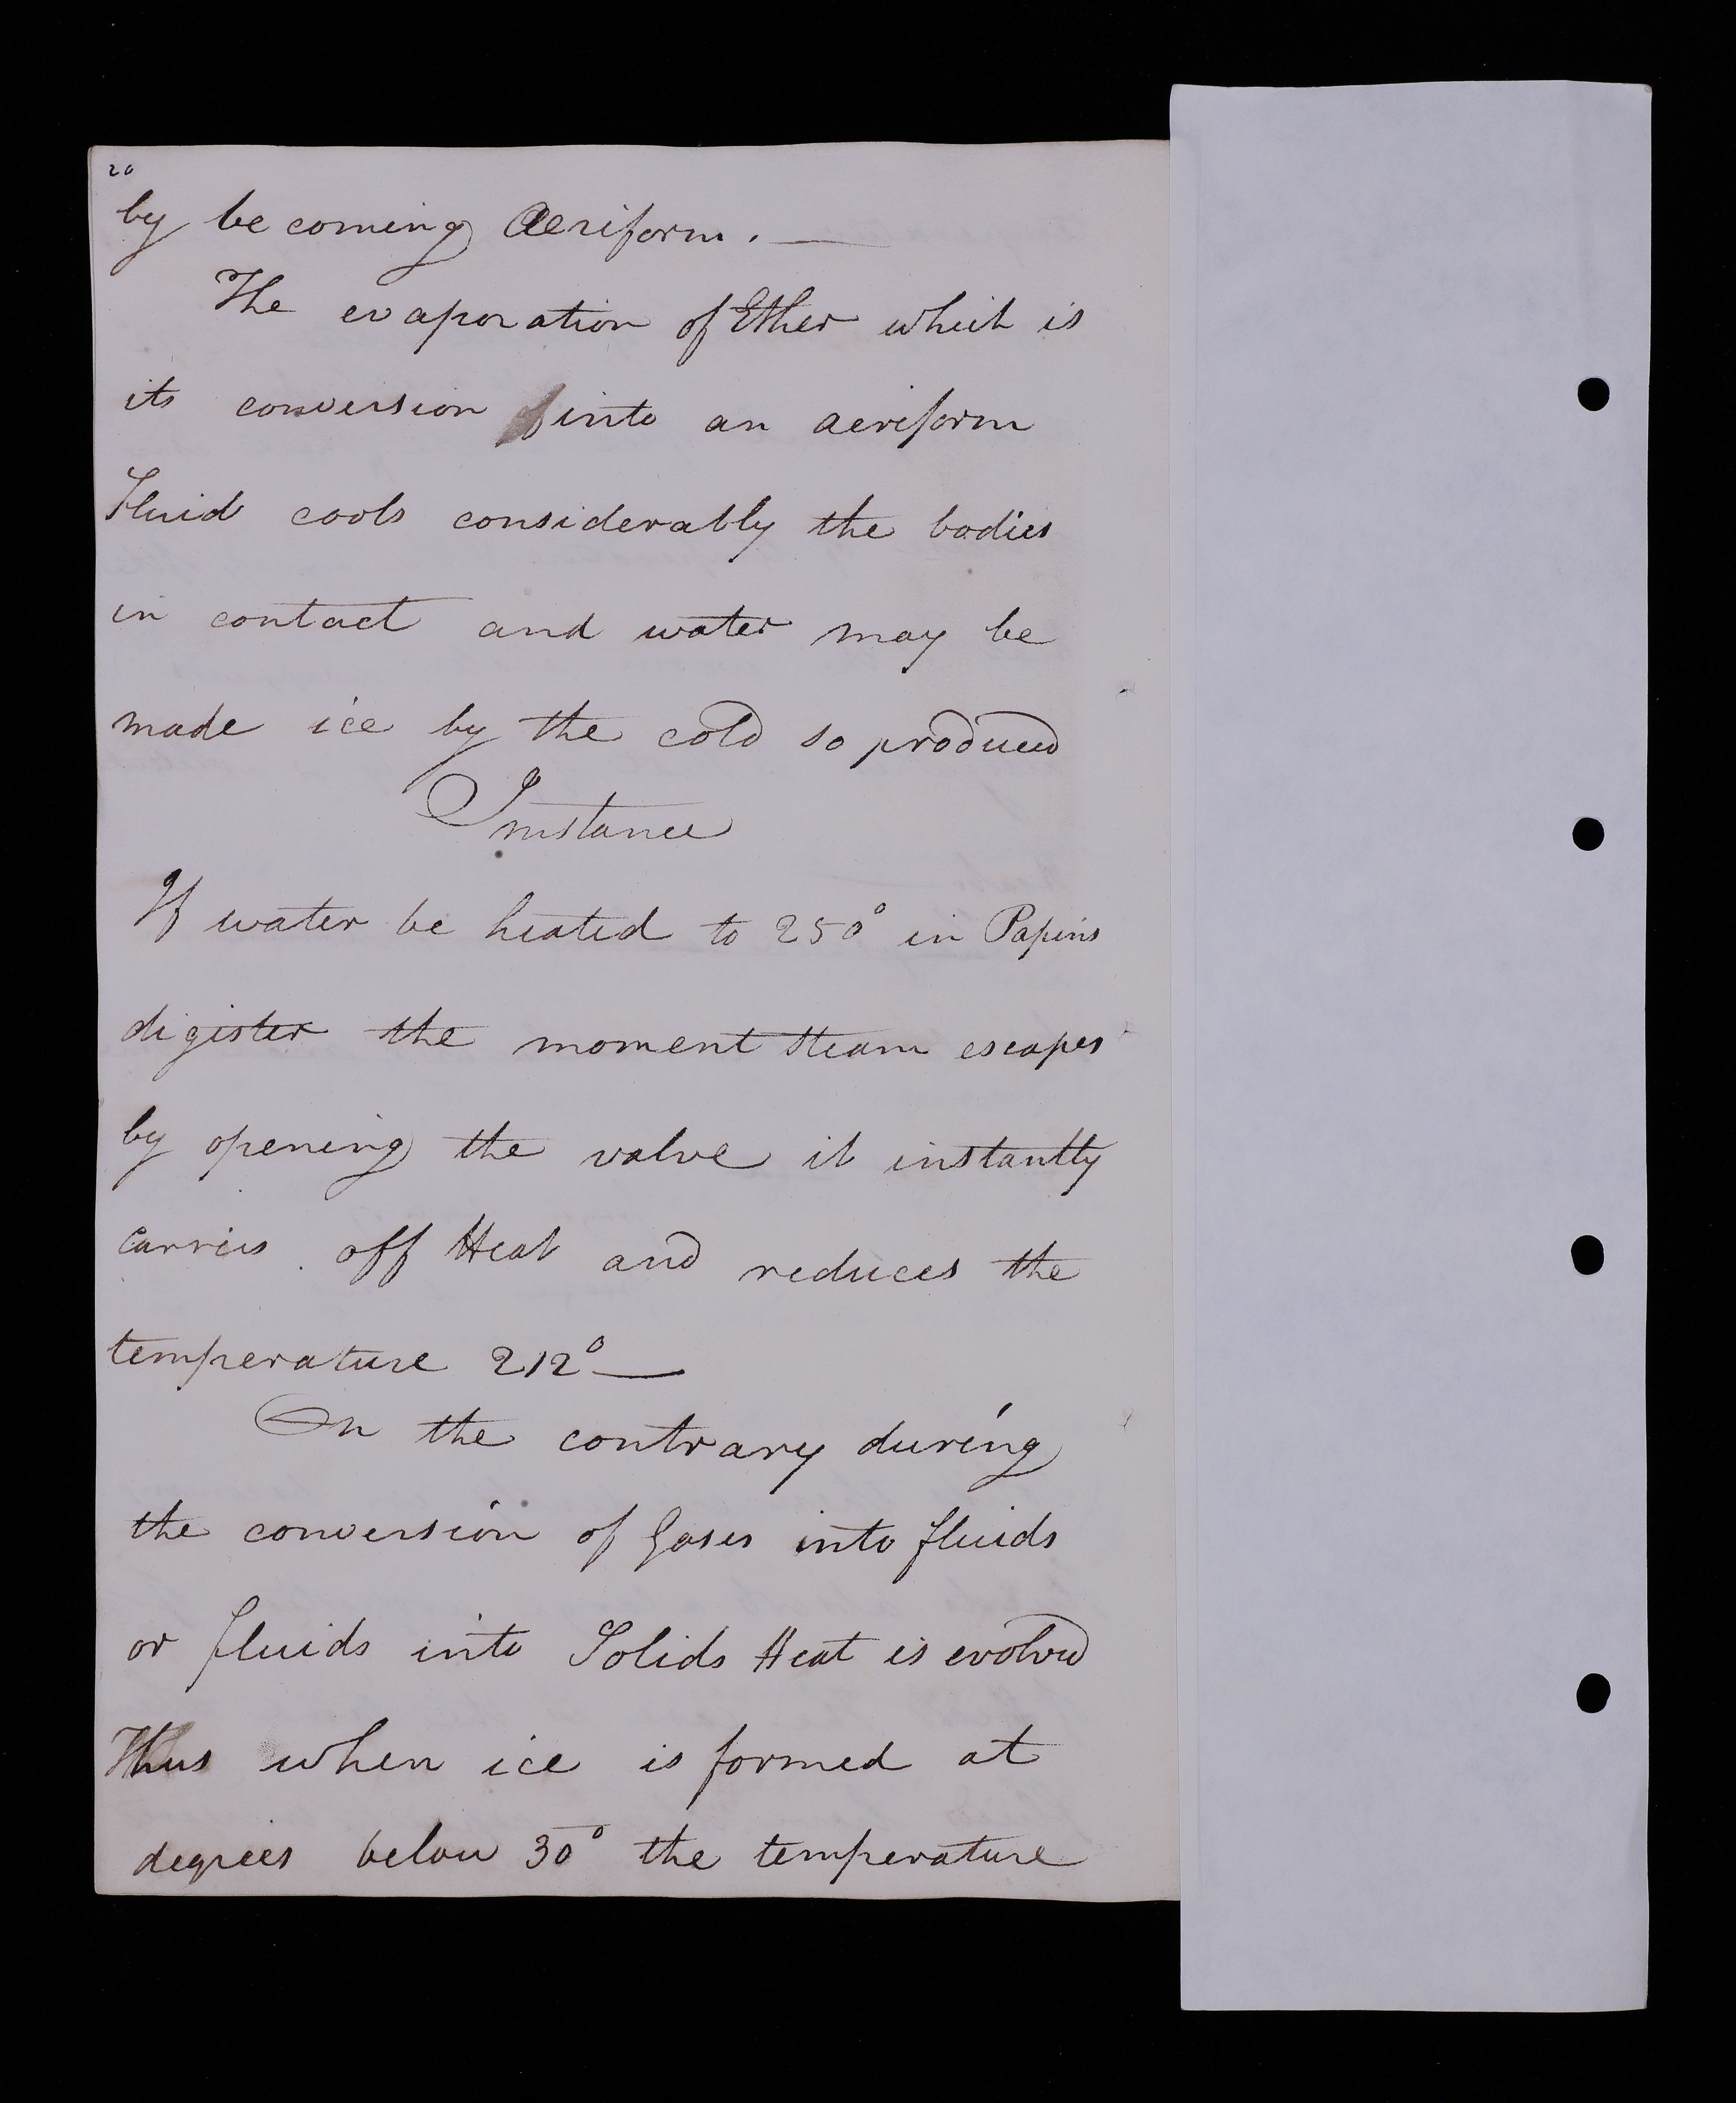 20
by be coming Aeriform. —
The evaporation of Ether which is
its conversion into an aeriform
Fluid cools considerably the bodies
in contact and water may be
made ice by the cold so produced
Instance
If water be heated to 250° in Papins
digister the moment steam escapes
by opening the valve it instantly
carries off Heat and reduces the
temperature 212° —
On the contrary during
the conversion of Gases into fluids
or fluids into Solids Heat is evolved
Thus when ice is formed at
degrees below 30° the temperature